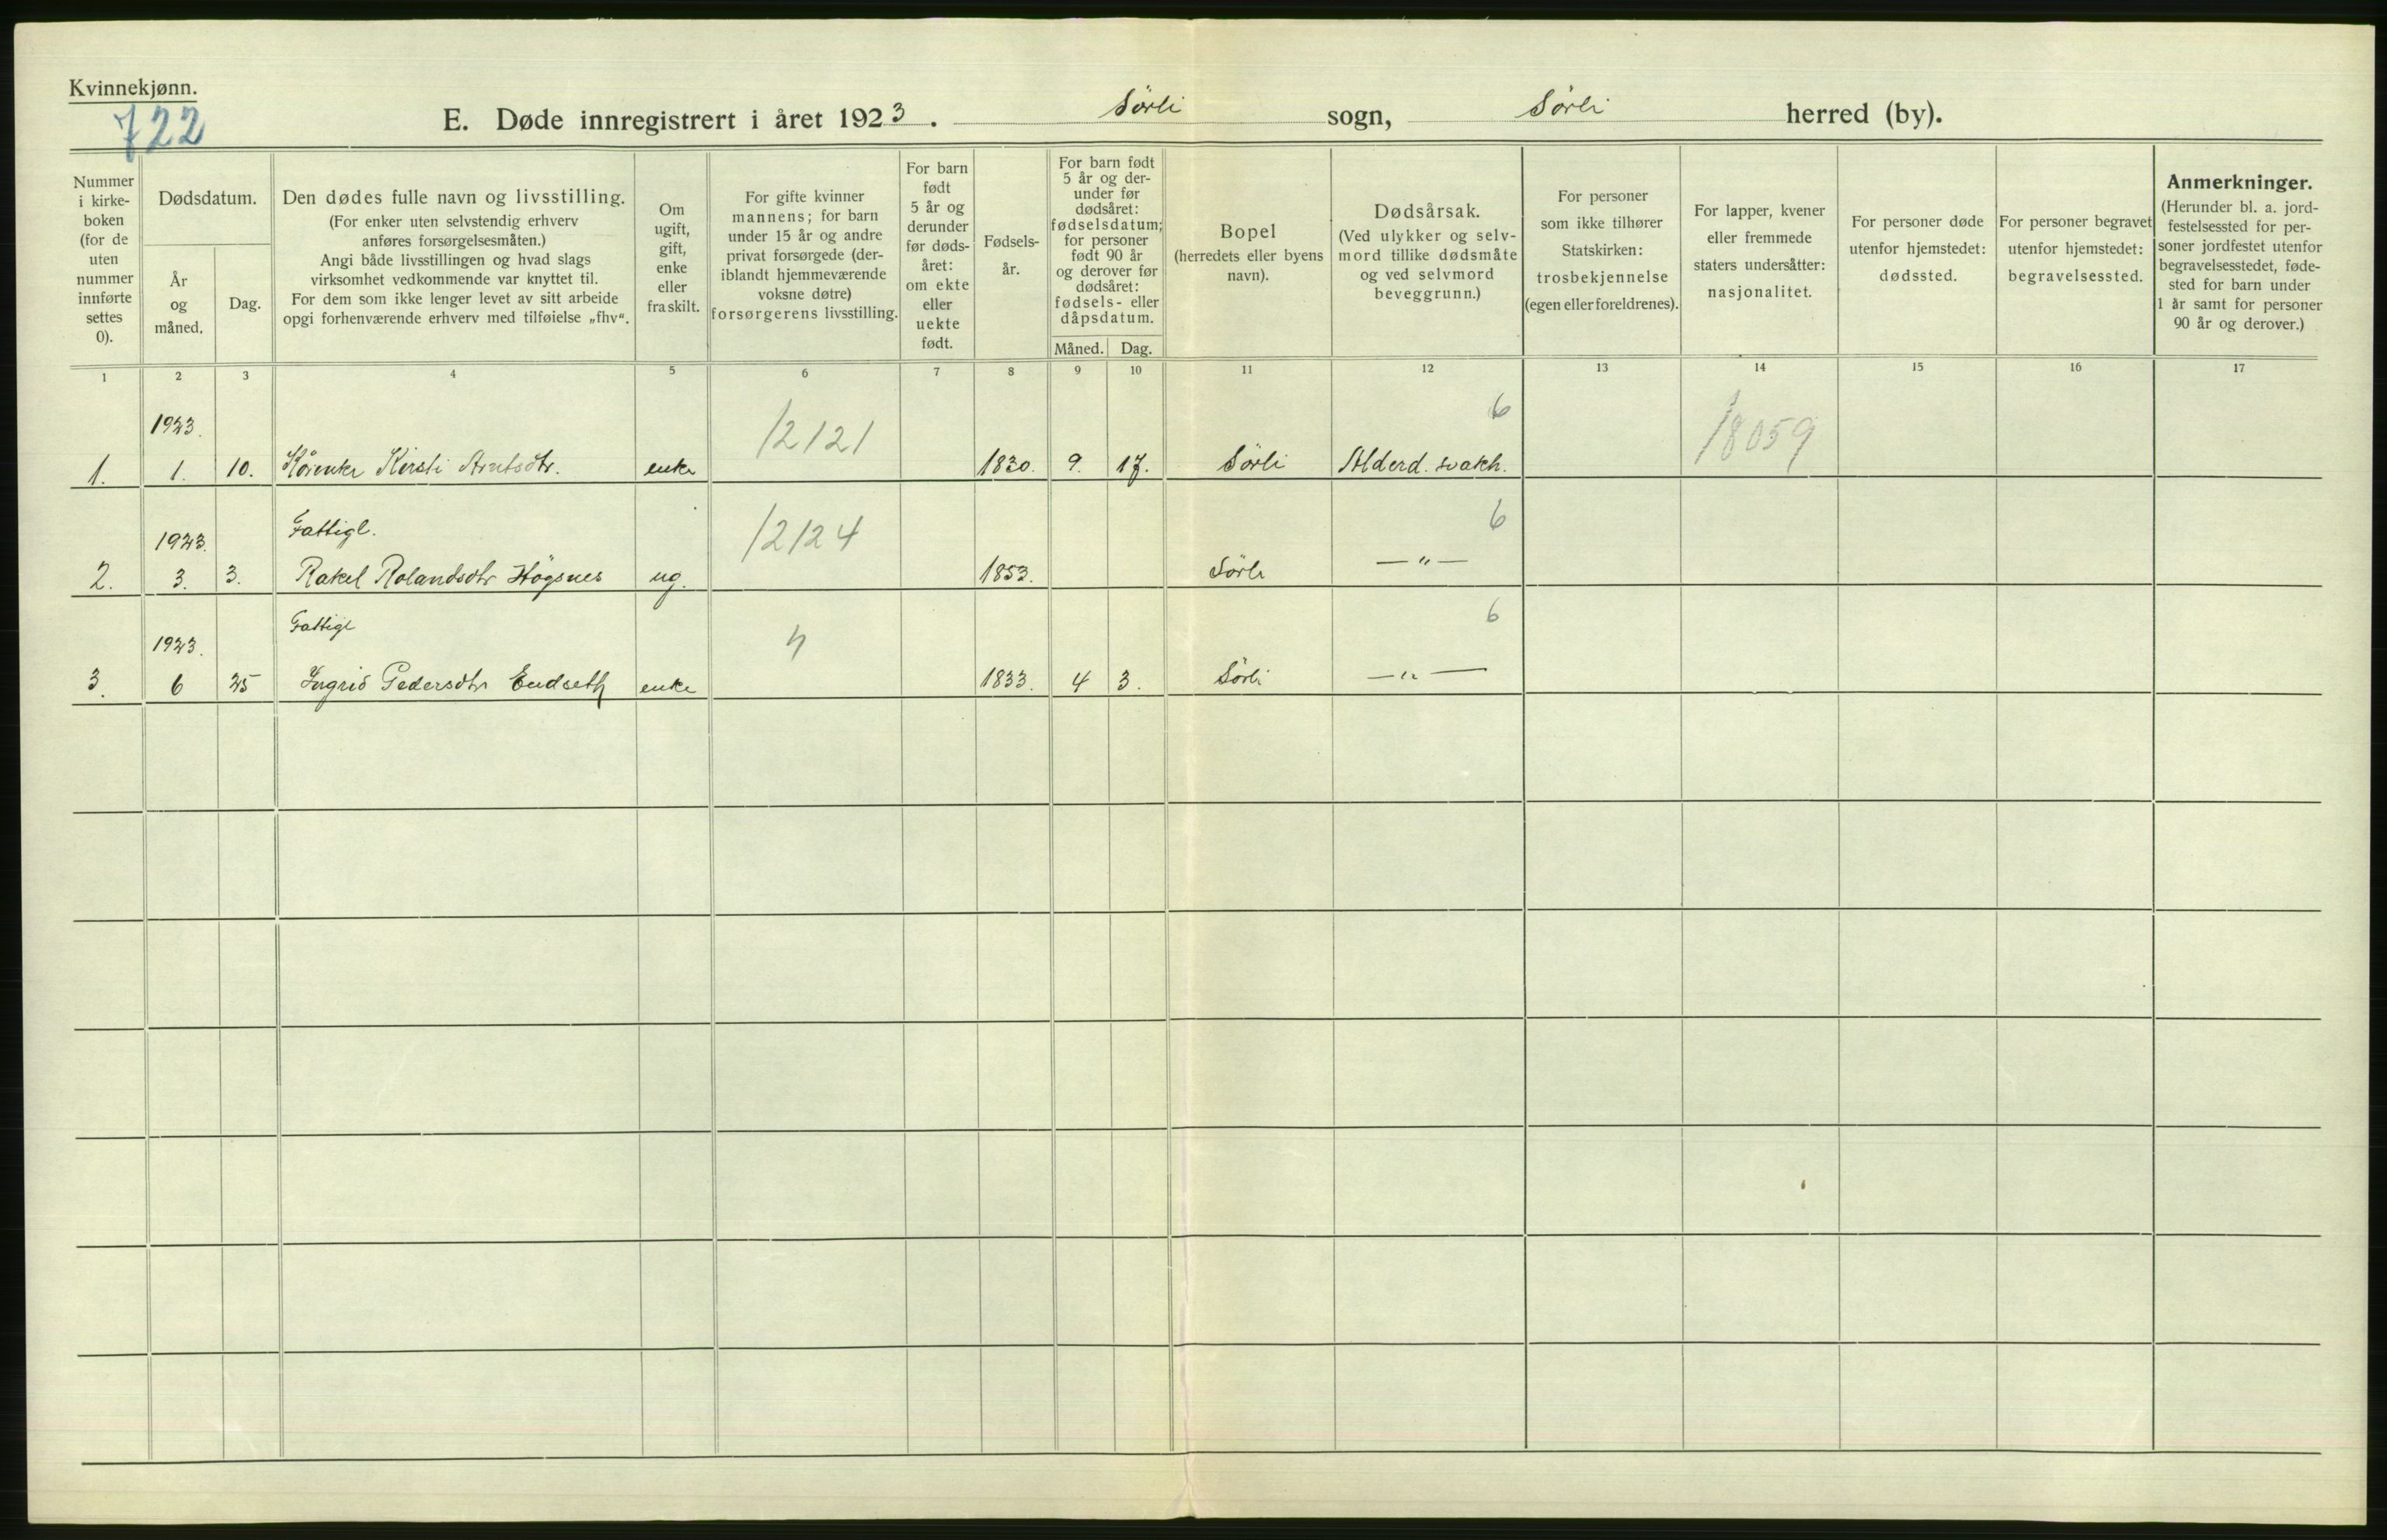 Kvinnekjønn.
722
E. Døde innregistrert i året 1923. Sörli sogn, Sörli herred (by).
Nummer
i kirke-
boken
(for de
uten
nummer
innførte
settes
0).
Dødsdatum.
År
og
måned.
Dag.
Den dødes fulle navn og livsstilling.
(For enker uten selvstendig erhverv
anføres forsørgelsesmåten.)
Angi både livsstillingen og hvad slags
virksomhet vedkommende var knyttet til.
For dem som ikke lenger levet av sitt arbeide
opgi forhenværende erhverv med tilføielse „fhv“.
Om
ugift,
gift,
enke
eller
fraskilt.
For gifte kvinner
mannens; for barn
under 15 år og andre
privat forsørgede (der-
iblandt hjemmeværende
voksne døtre)
forsørgerens livsstilling.
For barn
født
5 år og
derunder
før døds-
året:
om ekte
eller
uekte
født.
Fødsels-
år.
For barn født
5 år og der-
under før
dødsåret:
fødselsdatum;
for personer
født 90 år
og derover før
dødsåret:
fødsels- eller
dåpsdatum.
Måned. Dag.
Bopel
(herredets eller byens
navn).
Dødsårsak.
(Ved ulykker og selv-
mord tillike dødsmåte
og ved selvmord
beveggrunn.)
For personer
som ikke tilhører
Statskirken:
trosbekjennelse
(egen eller foreldrenes).
For lapper, kvener
eller fremmede
staters undersåtter:
nasjonalitet.
For personer døde
utenfor hjemstedet:
dødssted.
For personer begravet
utenfor hjemstedet:
begravelsessted.
Anmerkninger.
(Herunder bl. a. jord-
festelsessted for per-
soner jordfestet utenfor
begravelsesstedet, føde-
sted for barn under
1 år samt for personer
90 år og derover.)
1 2 3 4 5 6 7 8 9 10 11 12 13 14 15 16 17
1923. 12121 6 18059
1. 1. 10. Kårenke Kirsti Arntsdtr. enke 1830. 9. 17. Sörli Alderd. svakh.
Fattigl. 12124 6
1923.
2. 3. 3. Rakel Rolandsdtr Högsnes ug. 1853. Sörli — " —
Fattigl 6
1923. 4
3. 6 25 Ingrid Pedersdtr Endseth enke 1833. 4 3. Sörli — " —